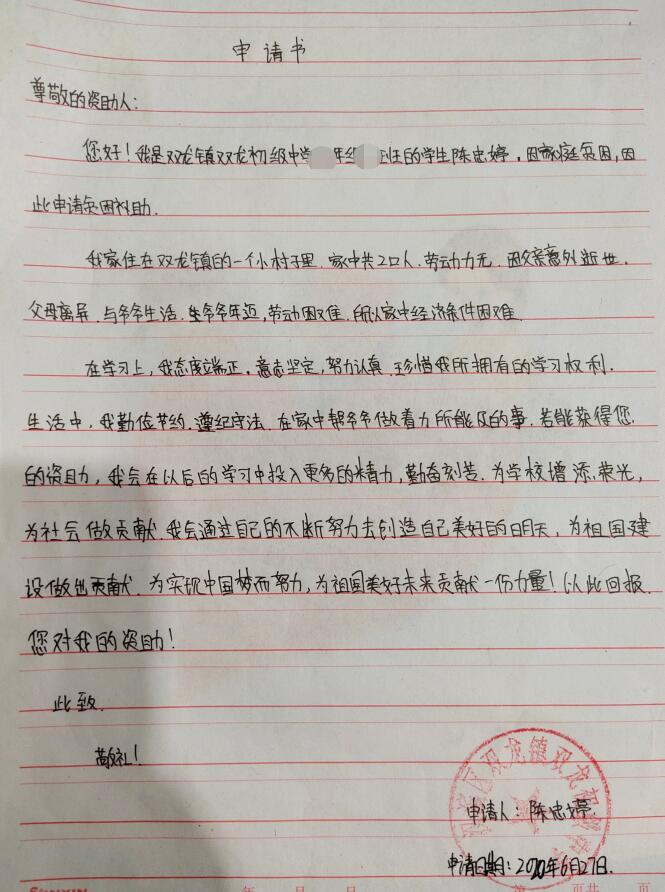 申请书
尊敬的资助人：
您好！我是双龙镇双龙初级中学 年级 班的学生陈忠婷，因家庭贫困，因
此申请贫困补助．
我家住在双龙镇的一个小村子里．家中共2口人．劳动力无．因父亲意外逝世．
父母离异．与爷爷生活．爷爷年迈，劳动困难．所以家中经济条件困难．
在学习上，我态度端正．意志坚定，努力认真．珍惜我所拥有的学习权利．
生活中，我勤俭节约．遵纪守法．在家中帮爷爷做着力所能及的事．若能获得您
的资助，我会在以后的学习中投入更多的精力，勤奋刻苦．为学校增添荣光，
为社会做贡献．我会通过自己的不断努力去创造自己美好的明天，为祖国建
设做出贡献．为实现中国梦而努力，为祖国美好未来贡献一份力量！以此回报
您对我的资助！
此致．
敬礼！
区双龙镇双龙初级
申请人：陈忠婷
申请日期：2020年6月27日．
年 月 日 第 页共 页